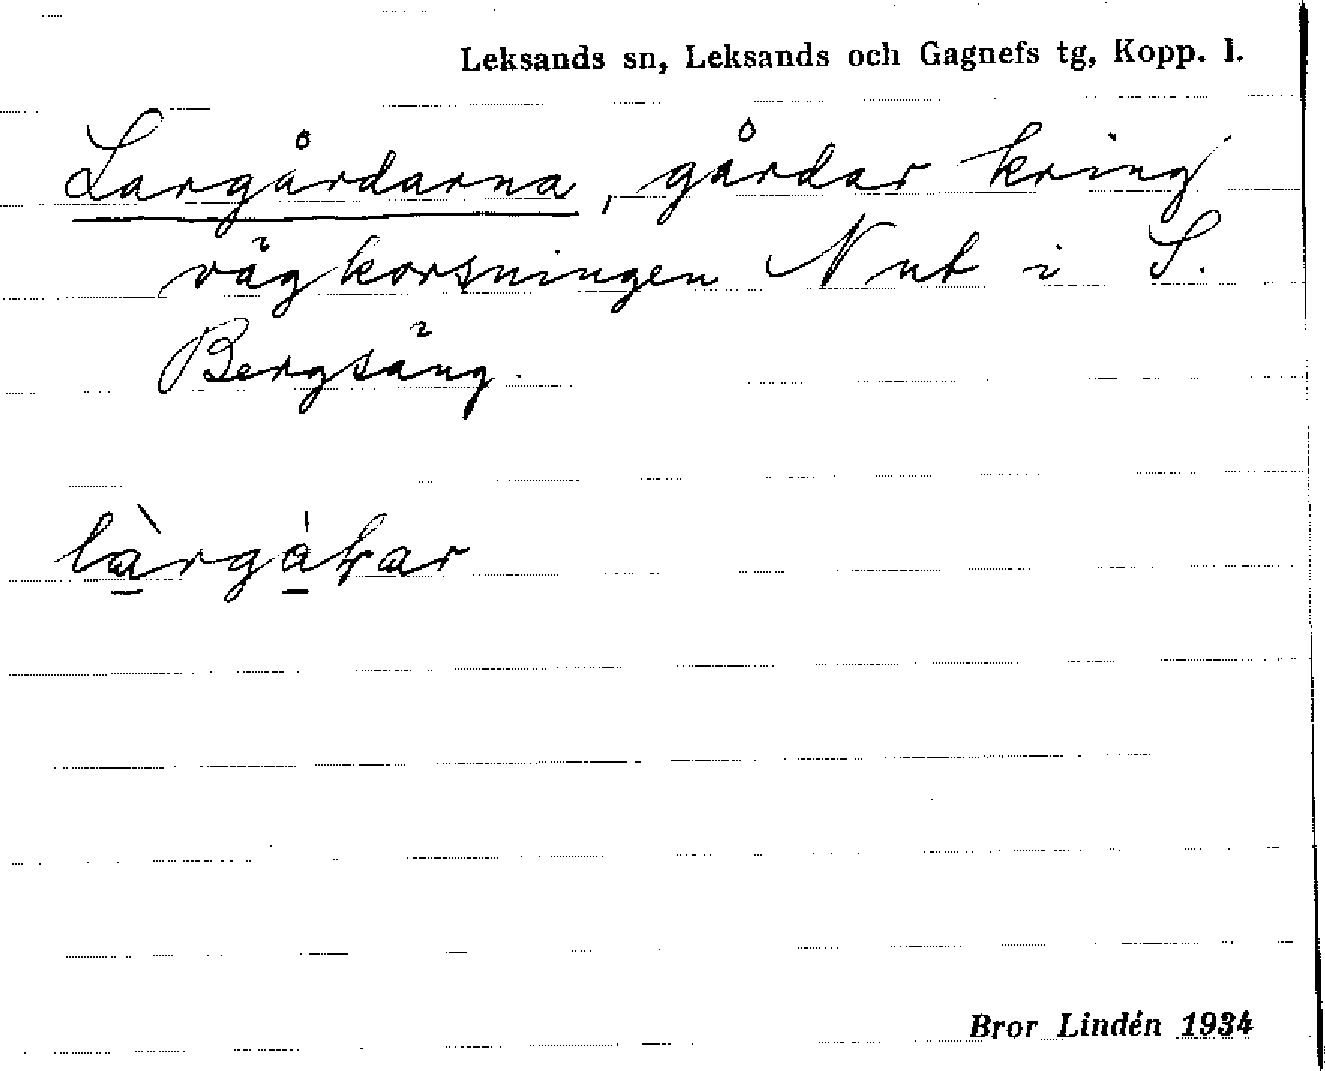 Leksands sn, Leksands och Gagnefs tg, Kopp. l.
Largårdarna, gårdar kring
vägkorsningen Nut i S.
Bergsäng.
Bror Lindén 1934